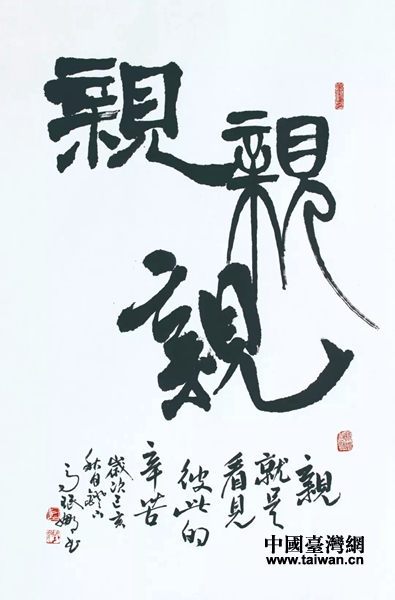 親
親
親
親
就是
看見
彼此的
辛苦
歲次己亥
秋月
中國臺灣網
www.taiwan.cn